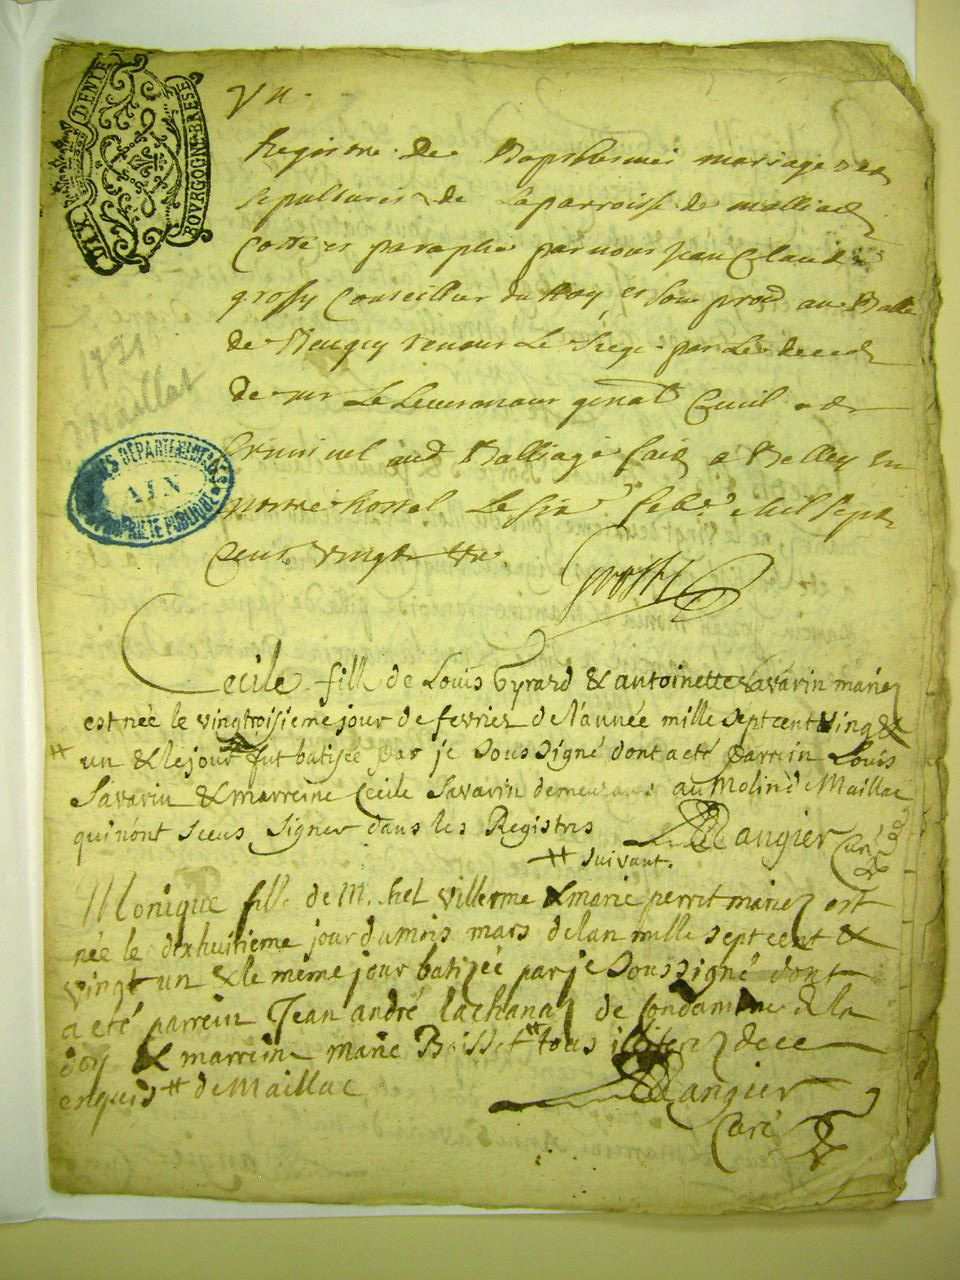 DIX DENIE
BOURGOGNE BRESSE
Registre de Bapthesmes mariages et
sepultures de la parroisse de Malliad
Cotté et paraphé par nous Jean Claude
grossy Conseiller du Roy et son au Balle
de Beugey tenant Le Siege par Le deced
de mr Le Lieutenant genal Civil et
Criminel aud Balliage fait a Belley en
nostre hostel Le six febr Mil Sept
Cent vingt un
Grossy
1721
Maillat
ARCHIVES DÉPARTEMENTALES
AIN
PROPRIÉTÉ PUBLIQUE
Cecile fille de Louis Gyrard & antoinette Savarin mariez
est née le vingtroisieme jour de fevrier de l'année mille sept cent ving &
un & le jour # fut batisée par je Soussigné dont a eté parrein Louis
Savarin & marreine Cecile Savarin demeurans au Molin de Maillac
qui n'ont sceus signer dans les Registres Mangier Curé
# suivant.
Monique fille de Michel Villerme & marie perret mariez est
née le dixhuitieme jour du mois mars de lan mille septcent &
vingt un & le même jour batizée par je Soussigné dont
a eté parrein Jean andré lachanaz de Condamine de la
doy & marreine marie Boisset # tous illiterez de ce
enquis # de Maillac
Mangier
Curé